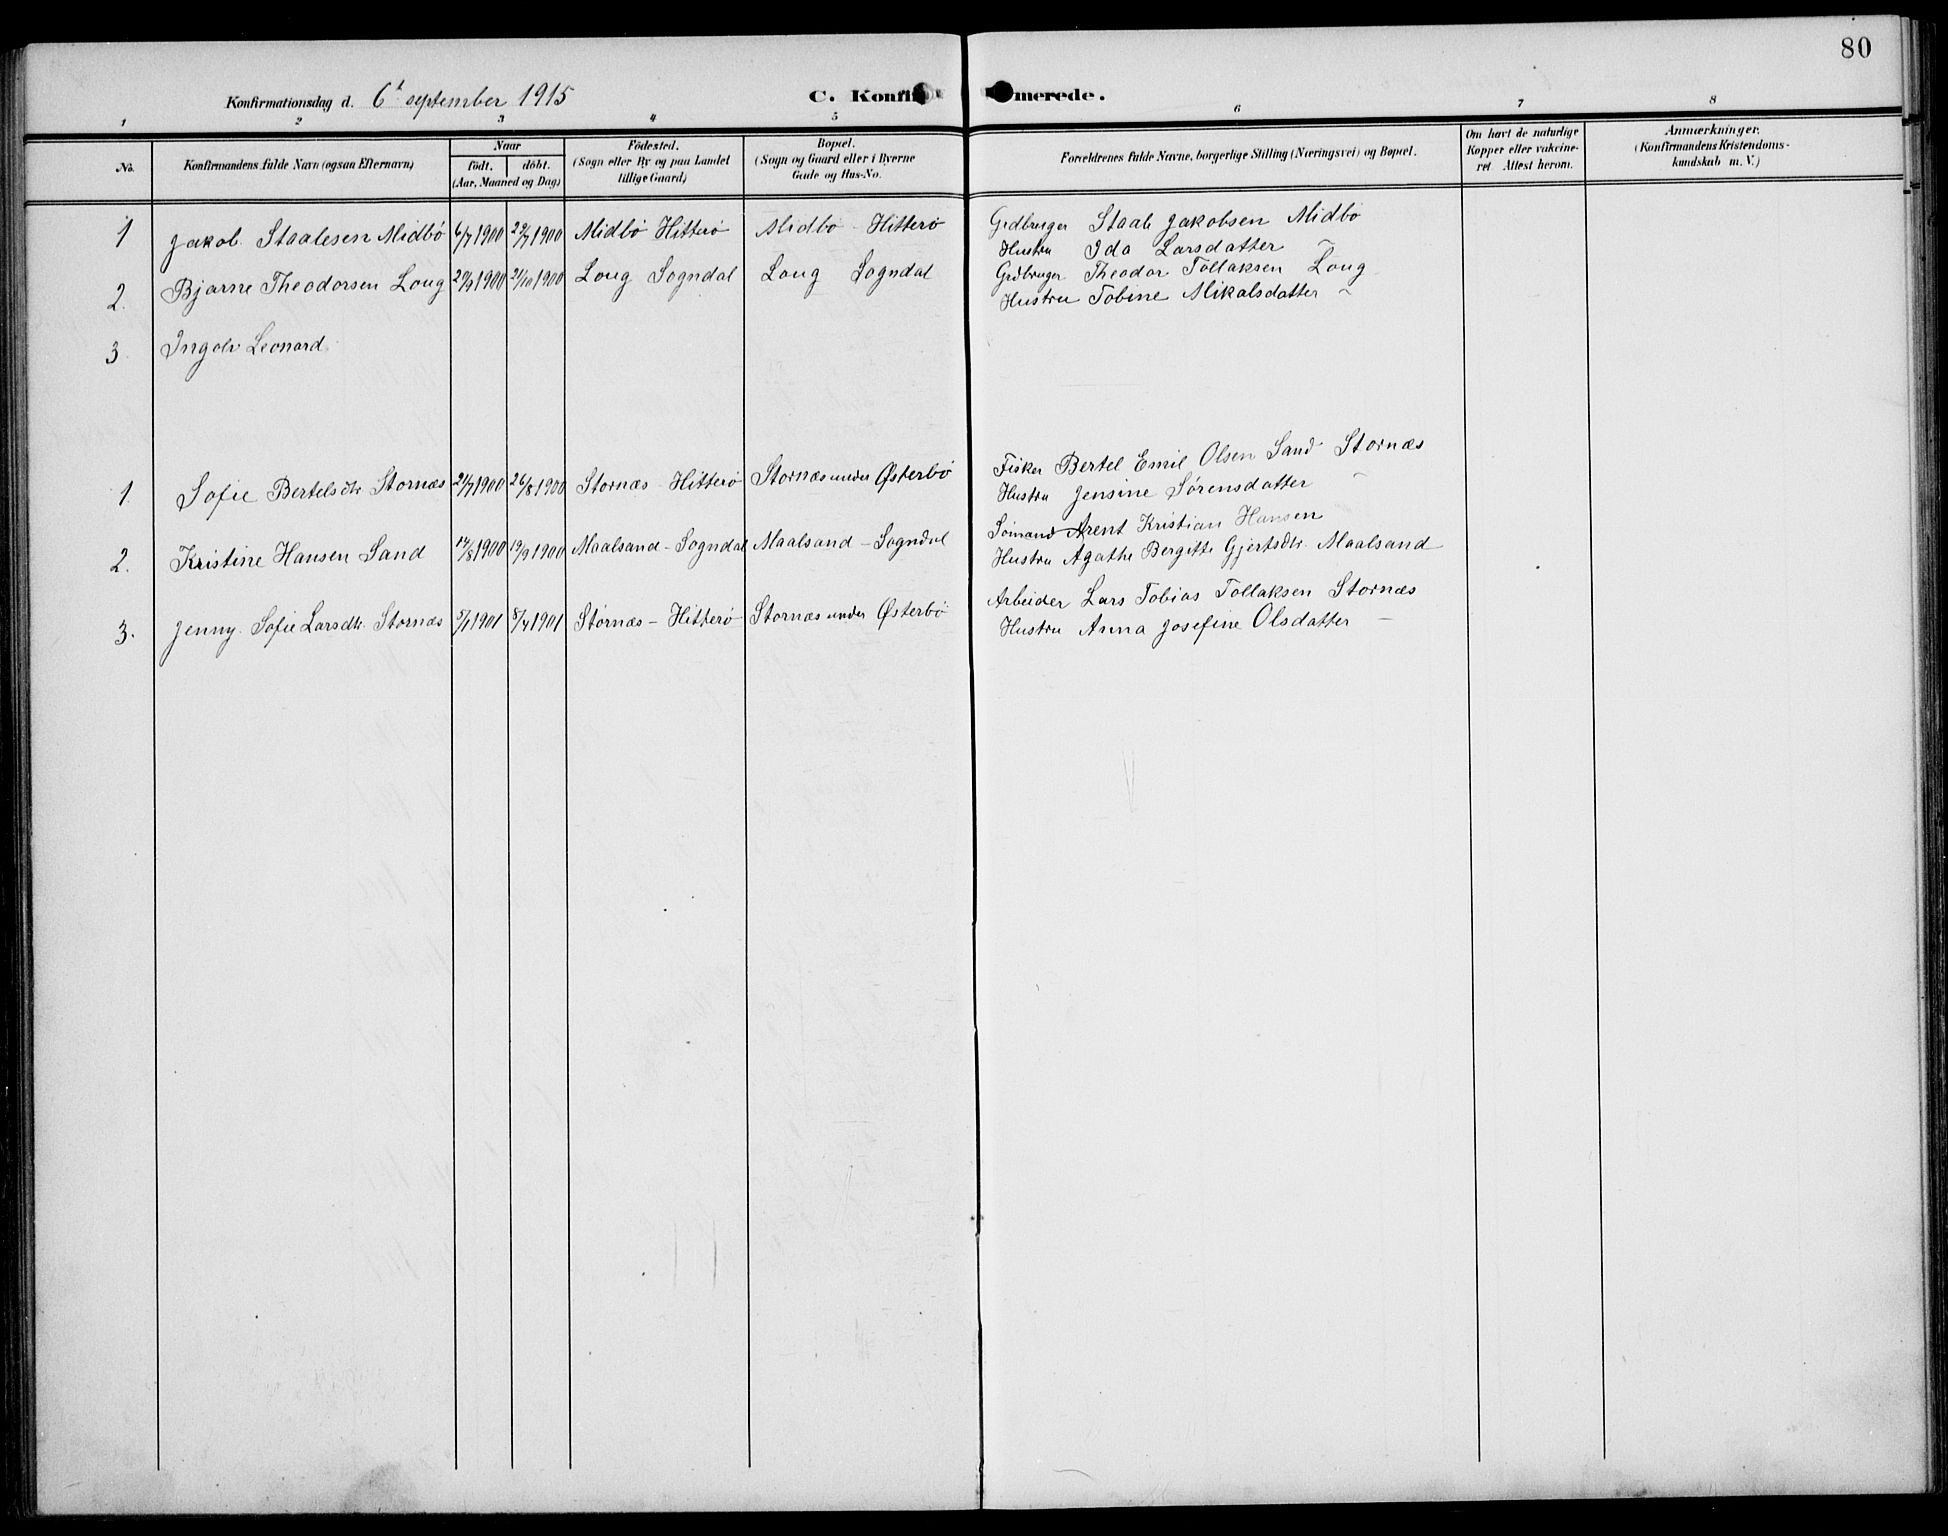 80
Konfirmationsdag d. 6t september 1915
C. Konfirmerede.
1 2 3 4 5 6 7 8
No.
Konfirmandens fulde Navn (ogsaa Efternavn)
Naar
födt. döbt.
(Aar, Maaned og Dag)
Födested.
(Sogn eller By og paa Landet
tillige Gaard)
Bopæl.
(Sogn og Gaard eller i Byerne
Gade og Hus-No.
Forældrenes fulde Navne, borgerlige Stilling (Næringsvei) og Bopæl.
Om havt de naturlige
Kopper eller vakcine-
ret. Attest herom.
Anmærkninger.
(Konfirmandens Kristendoms-
kundskab m. V.)
1 Jakob Staalesen Midbö 6/7 1900 29/7 1900 Midbö Hitterö Midbö Hitterö Grdbruger Staale Jakobsen Midbö
Hustru Ida Larsdatter ~
2. Bjarne Theodorsen Loug 29/9 1900 21/10 1900 Loug Sogndal Loug Sogndal Grdbruger Theodor Tollaksen Loug
Hustru Tobine Mikalsdatter ~
3 Ingolv Leonard
1. Sofie Bertelsdtr Stornæs 21/7 1900 26/8 1900 Stornæs - Hitterö Stornæs under Østerbö Fisker Bertel Emil Olsen Sand Stornæs
Hustru Jensine Sørensdatter ~
2. Kristine Hansen Sand 14/8 1900 19/9 1900 Maalsand - Sogndal Maalsand - Sogndal Sömand Arent Kristian Hansen
Hustru Agathe Bergitte Gjertsdtr. Maalsand
3. Jenny Sofie Larsdtr. Stornæs 5/1 1901 8/4 1901 Stornæs - Hitterö Stornæs under Østerbö Arbeider Lars Tobias Tollaksen Stornæs
Hustru Anna Josefine Olsdatter -